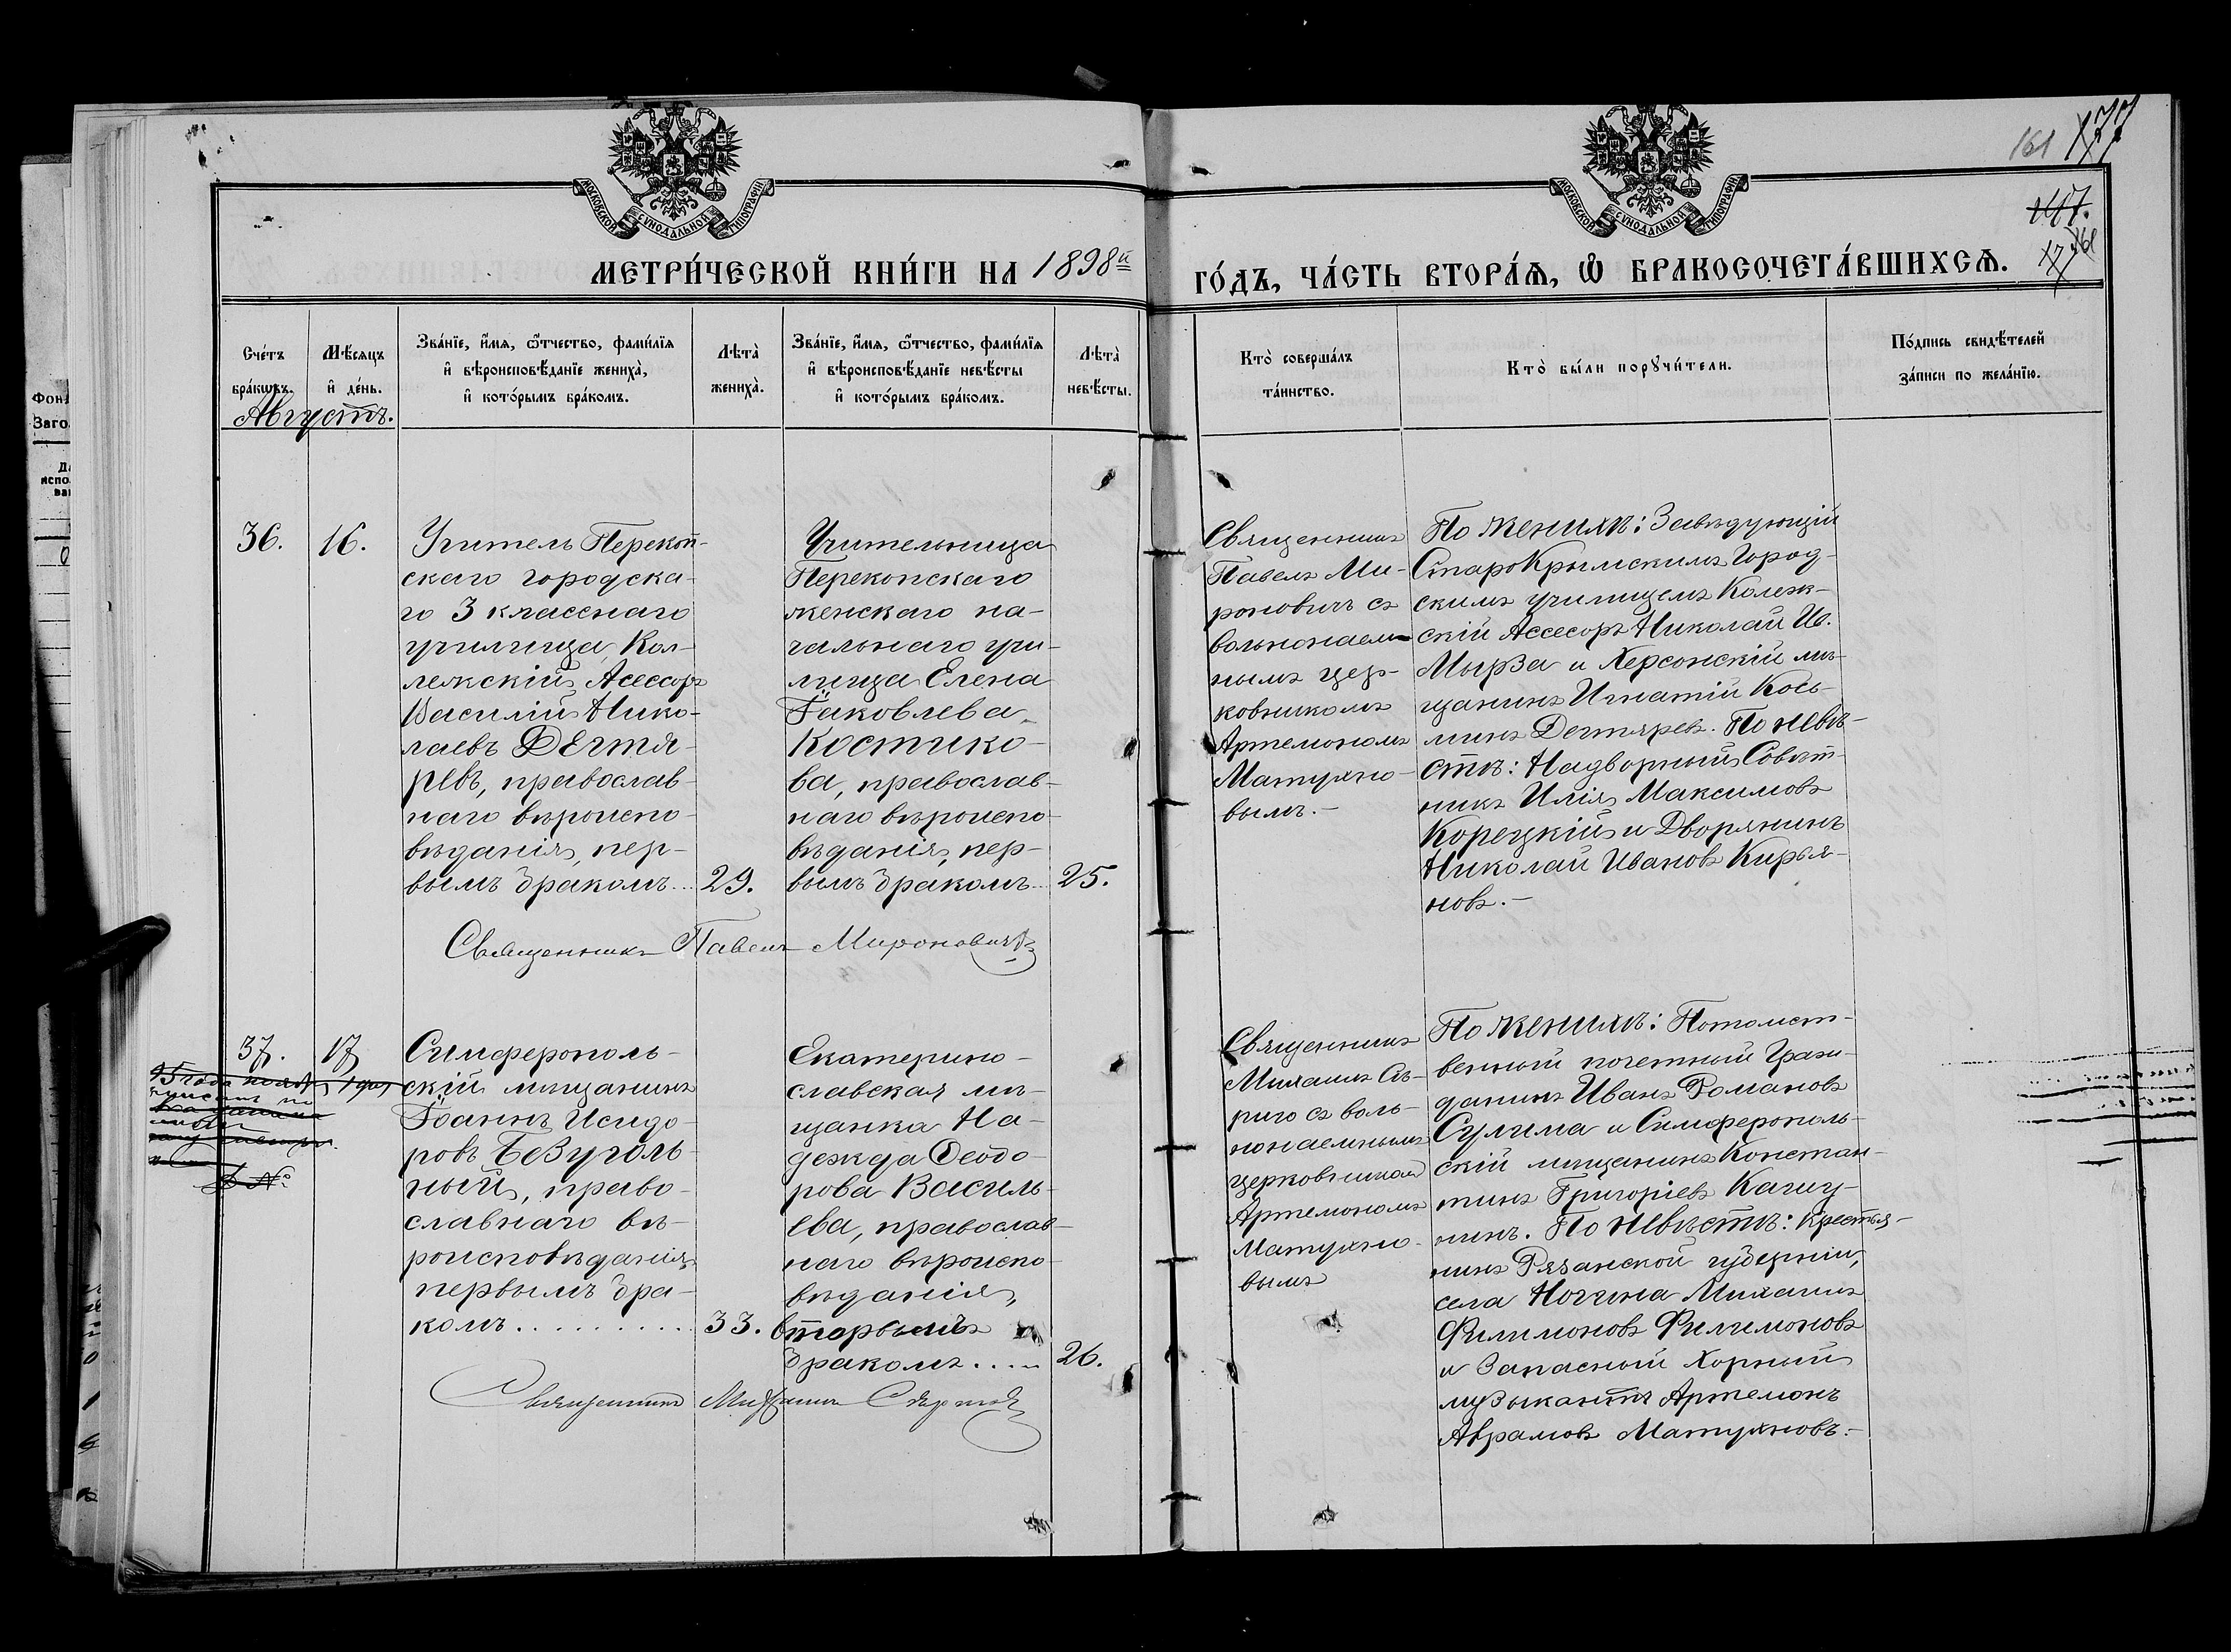 МОСКОВСКОЙ СУНОДАЛЬНОЙ ТИПОГРАФІИ
МОСКОВСКОЙ СУНОДАЛЬНОЙ ТИПОГРАФІИ
161 177
МЕТРИ́ЧЕСКОЙ КНИ́ГИ НА 1898й
ГО́ДЪ, ЧА́СТЬ ВТОРА́Ѧ, Ѡ҆ БРАКОСОЧЕТА́ВШИХСѦ.
Сче́тъ
бра́кѡвъ.
Мѣ́сѧцъ
и҆ де́нь.
Зва́нїе, и҆́мѧ, ѻ҆́тчество, фами́лїѧ
и҆ вѣроисповѣ́данїе жениха̀,
и҆ кото́рымъ бра́комъ.
Лѣта̀
жениха̀.
Зва́нїе, и҆́мѧ, ѻ҆́тчество, фами́лїѧ
и҆ вѣроисповѣ́данїе невѣ́сты
и҆ кото́рымъ бра́комъ.
Лѣта̀
невѣ́сты.
Кто̀ соверша́лъ
та́инство.
Кто̀ бы́ли порꙋчи́тели.
По́дпись свидѣ́телей
за́писи по жела́нїю.
Августъ.
36.
16.
Учитель Перекоп-
скаго городска-
го 3 класснаго
училища, Кол-
лежскій Асессоръ
Василій Нико-
лаевъ Дегтя-
ревъ, православ-
наго вѣроиспо-
вѣданія, пер-
вымъ бракомъ...
29.
Учительница
Перекопскаго
женскаго на-
чальнаго учи-
лища Елена
Іаковлева
Костико-
ва, православ-
наго вѣроиспо-
вѣданія, пер-
вымъ бракомъ..
25.
Священникъ
Павелъ Ми-
роновичъ съ
вольнонаем-
нымъ цер-
ковникомъ
Артемономъ
Матухно-
вымъ.-
По женихѣ: Завѣдующій
СтароКрымскимъ Город-
скимъ училищемъ Колеж-
скій Ассесоръ Николай Ив.
Мырза и Херсонскій мѣ-
щанинъ Игнатій Кось-
минъ Дегтяревъ. По невѣ-
стѣ: Надворный Совѣт-
никъ Илія Максимовъ
Корецкій и Дворянинъ
Николай Ивановъ Кирья-
новъ.-
Священникъ Павелъ Мироновичъ
37.
17
Симферополь-
скій мѣщанинъ
Іоаннъ Исидо-
ровъ Безуголь-
ный, право-
славнаго вѣ-
роисповѣданія,
первымъ бра-
комъ..........
33.
Екатерино-
славская мѣ-
щанка На-
дежда Ѳеодо-
рова Василь-
ева, православ-
наго вѣроиспо-
вѣданія,
вторымъ
бракомъ.....
26.
Священникъ
Михаилъ Сѣ-
рико съ воль-
нонаемнымъ
церковникомъ
Артемономъ
Матухно-
вымъ
По женихѣ: Потомст-
венный почетный Граж-
данинъ Иванъ Романовъ
Сулима и Симферополь-
скій мѣщанинъ Констан-
тинъ Григоріевъ Качу-
нинъ. По невѣстѣ: Крестья-
нинъ Рязанской губерніи,
села Ногина Михаилъ
Филимоновъ Филимоновъ
и Запасный Хорный
музыкантъ Артемонъ
Аврамовъ Матухновъ.-
Священникъ Михаилъ